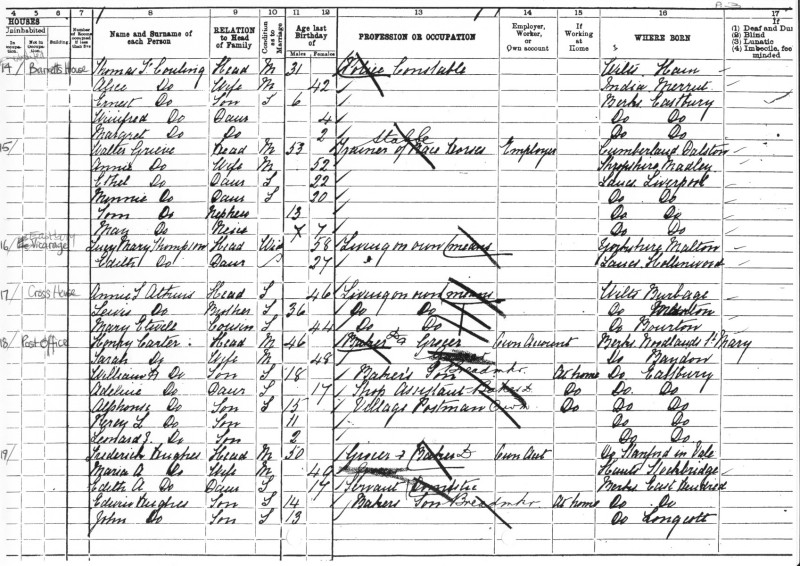 4 5 6 7 8 9 10 11 12 13 14 15 16 17
HOUSES
Uninhabited
In Occupation. Not in Occupation. Building.
Name and Surname of each Person
RELATION to Head of Family
Condition as to Marriage
Age last Birthday of
Males Females
PROFESSION OR OCCUPATION
Employer, Worker, or Own account
If Working at Home
WHERE BORN
If
(1) Deaf and Du
(2) Blind
(3) Lunatic
(4) Imbecile, fee
minded
14 Barnetts House Thomas Couling Head M 31 Police Constable Wilts Ham
Alice Do Wife M 42 India Meerut
Ernest Do Son S 6 Berks Eastbury
Winifred Do Daur 4 Do Do
Margret Do Do 2 Do Do
15 Walter Grieve Head M 53 Trainer of Race Horses Stable Employer Cumberland Dalston
Annie Do Wife M 52 Shropshire Madley
Ethel Do Daur S 22 Lancs Liverpool
Minnie Do Daur S 20 Do Do
Tom Do Nephew 13 Do Do
May Do Niece 7 Do Do
16 Eastbury Vicarage Lucy Mary Thompson Head Wid 58 Living on own means Yorkshire Malton
Edith Do Daur 27 Lancs Hollinwood
17 Cross House Annie Head S 46 Living on own means Wilts Burbage
Lewis Do Brother S 36 Do Do Do
Mary Cousin S 44 Do Do Do Bourton
18 Post Office Henry Carter Head M 46 Baker & Grocer Own Account Berks Woodlands St Mary
Sarah Do Wife M 48 Do Baydon
William H Do Son S 18 Baker's Son Breadmkr At home Do Eastbury
Adeline Do Daur S 17 Shop Assistant Bakers Do Do Do
Alphonso Do Son S 15 Village Postman Do Do Do
Percy L Do Son 11 Do Do
Leonard J. Do Son 2 Do Do
19 Frederick Hughes Head M 50 Grocer & Baker Own Acct Do Stanford in Vale
Maria A Do Wife M 40 Hants Stockbridge
Edith A Do Daur S 17 Servant Domestic Berks East Hendred
Edwin Hughes Son S 14 Bakers Son Breadmkr At home Do Do
John Do Son S 13 Do Longcott